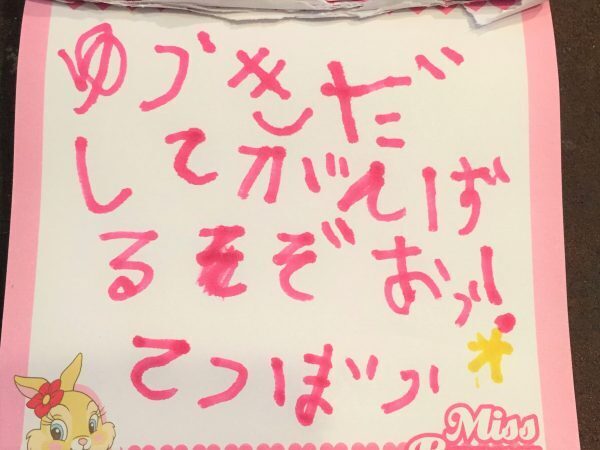 ゆうきだ
してがんば
るぞおう!
てつぼう
Miss